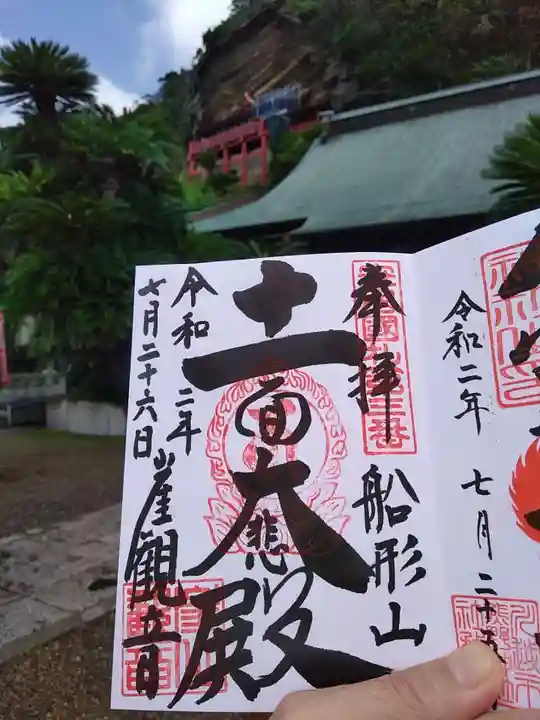 令和二年
七月二十
奉拝
船形山
十一面大悲殿
令和二年
七月二十六日
崖観音